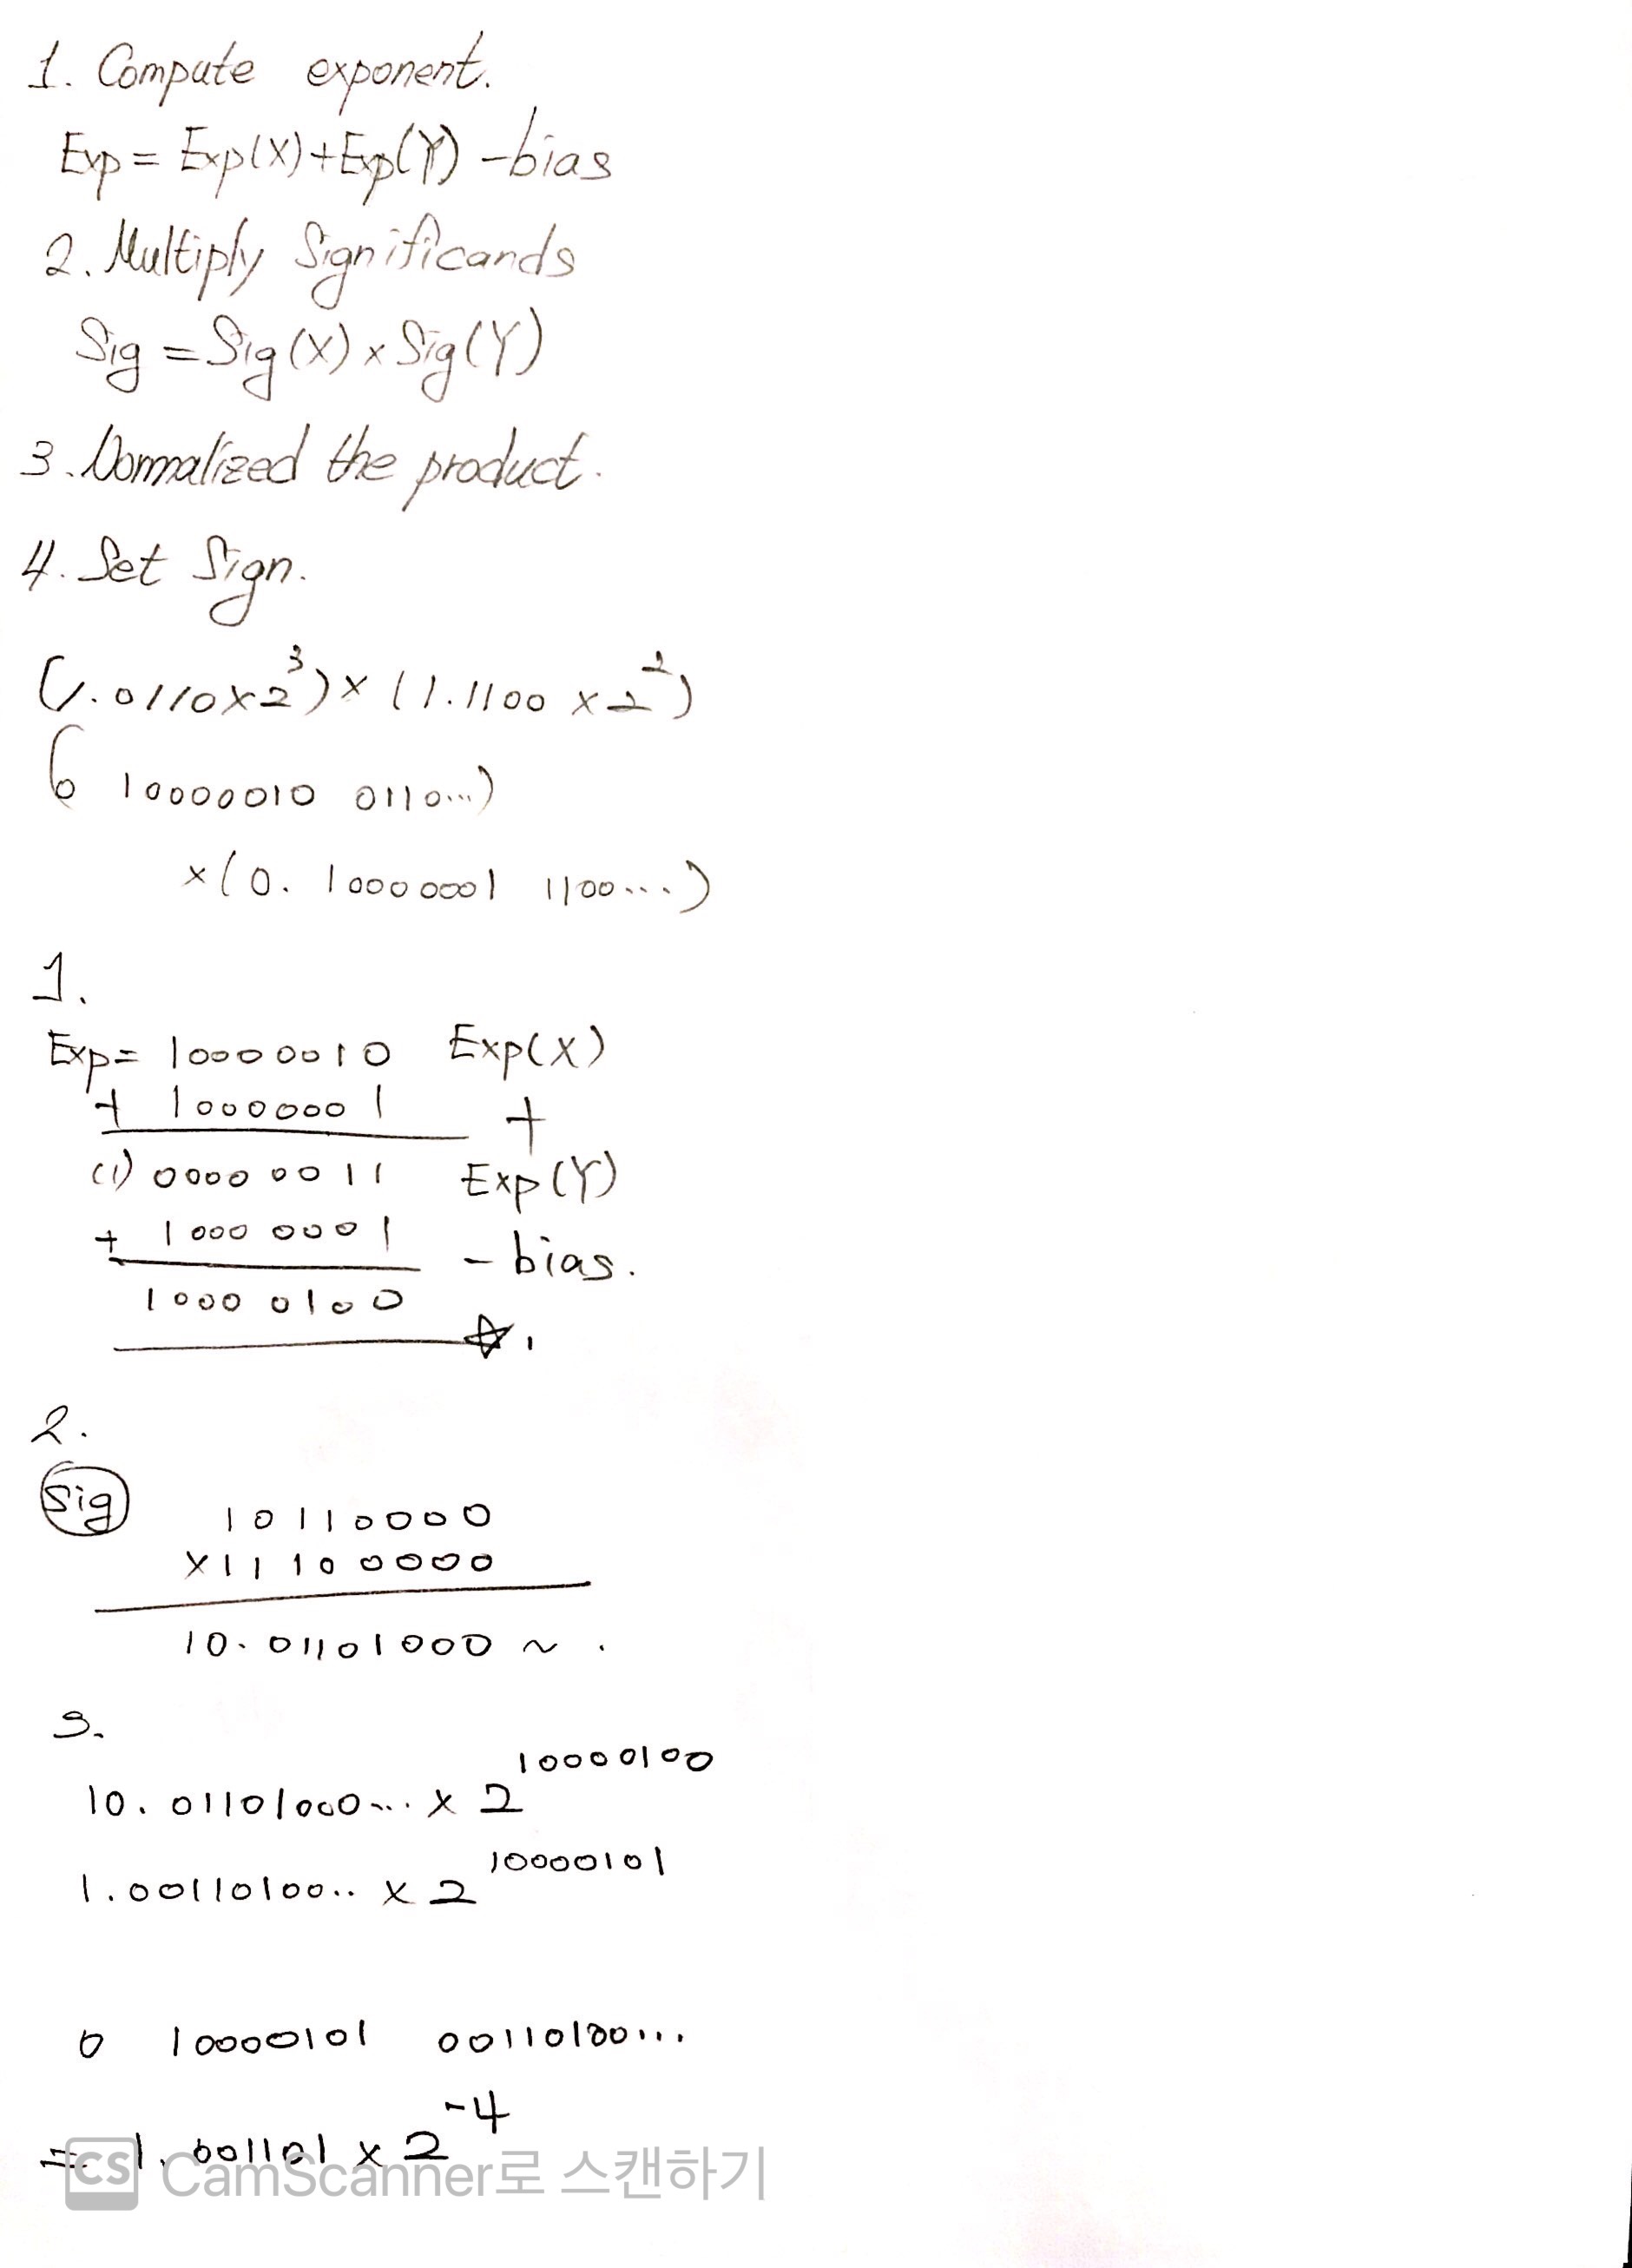 1. Compute exponent.
Exp = Exp(X)+Exp(Y) -bias
2. Multiply Significands
Sig = Sig(X) x Sig(Y)
3. Normalized the product.
4. Set Sign.
(1.0110x2^3) x (1.1100 x 2^2)
(0 10000010 0110...)
x(0. 10000001 1100....)
1.
Exp= 10000010 Exp(X)
+ 10000001 +
(1) 00000011 Exp(Y)
+ 10000001 - bias.
10000100
2.
Sig 10110000
x11100000
10.01101000 ~ .
3.
10.01101000... x 2^10000100
1.00110100.. x 2^10000101
0 10000101 00110100...
= 1.001101 x 2^-4
CS CamScanner로 스캔하기